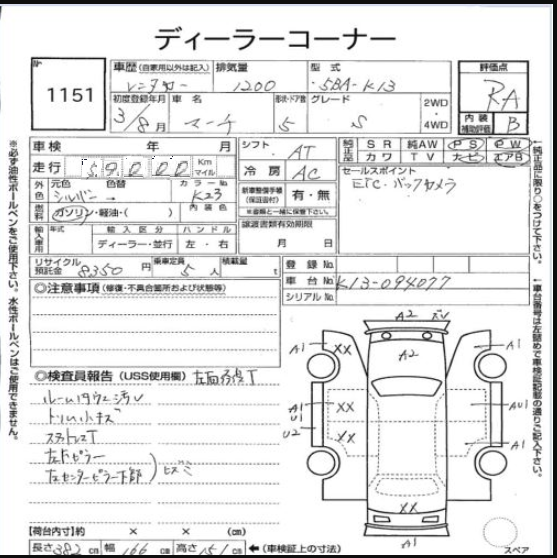 ディーラーコーナー
No.
1151
車歴(自家用以外は記入)
レンタカー
排気量
1200
型式
5BA-K13
評価点
RA
内装補助評価
B
初度登録年月
3/8月
車名
マーチ
形状・ドア数
5
グレード
S
2WD
・
4WD
車検 年 月
シフト
AT
純正品
SR 純AW PS PW
カワ TV ナビ エアB
走行 59000 Km マイル
冷房
AC
セールスポイント
ETC.バックカメラ
外色
元色
シルバー
色替
カラーNo.
K23
新車整備手帳(保証書付)
有・無
※書類と一緒に保管下さい。
燃料
ガソリン・軽油・( )
内装色
譲渡書類有効期限
月 日
輸入車用
年式
輸入区分
ディーラー・並行
ハンドル
左・右
リサイクル預託金
8350円
乗車定員
5人
積載量
t
登録No.
車台No.
K13-094077
シリアルNo.
◎注意事項(修復・不具合箇所および状態等)
◎検査員報告(USS使用欄)
ルーム内ウエ汚レ
トリム小キズ
左Fピラー
左センターピラー下部
ヒズミ
A2
A2
A1
XX
A1
A1
U1
XX
AU1
U2
XX
A1
XX
A1
スペア
【荷台内寸】約 × × (cm)
長さ382cm 幅166cm 高さ151cm ←(車検証上の寸法)
※必ず油性ボールペンをご使用下さい。水性ボールペンは使用できません。
←純正品に限り○をつけて下さい。
←車台番号は左詰めで車検証記載の通りご記入下さい。